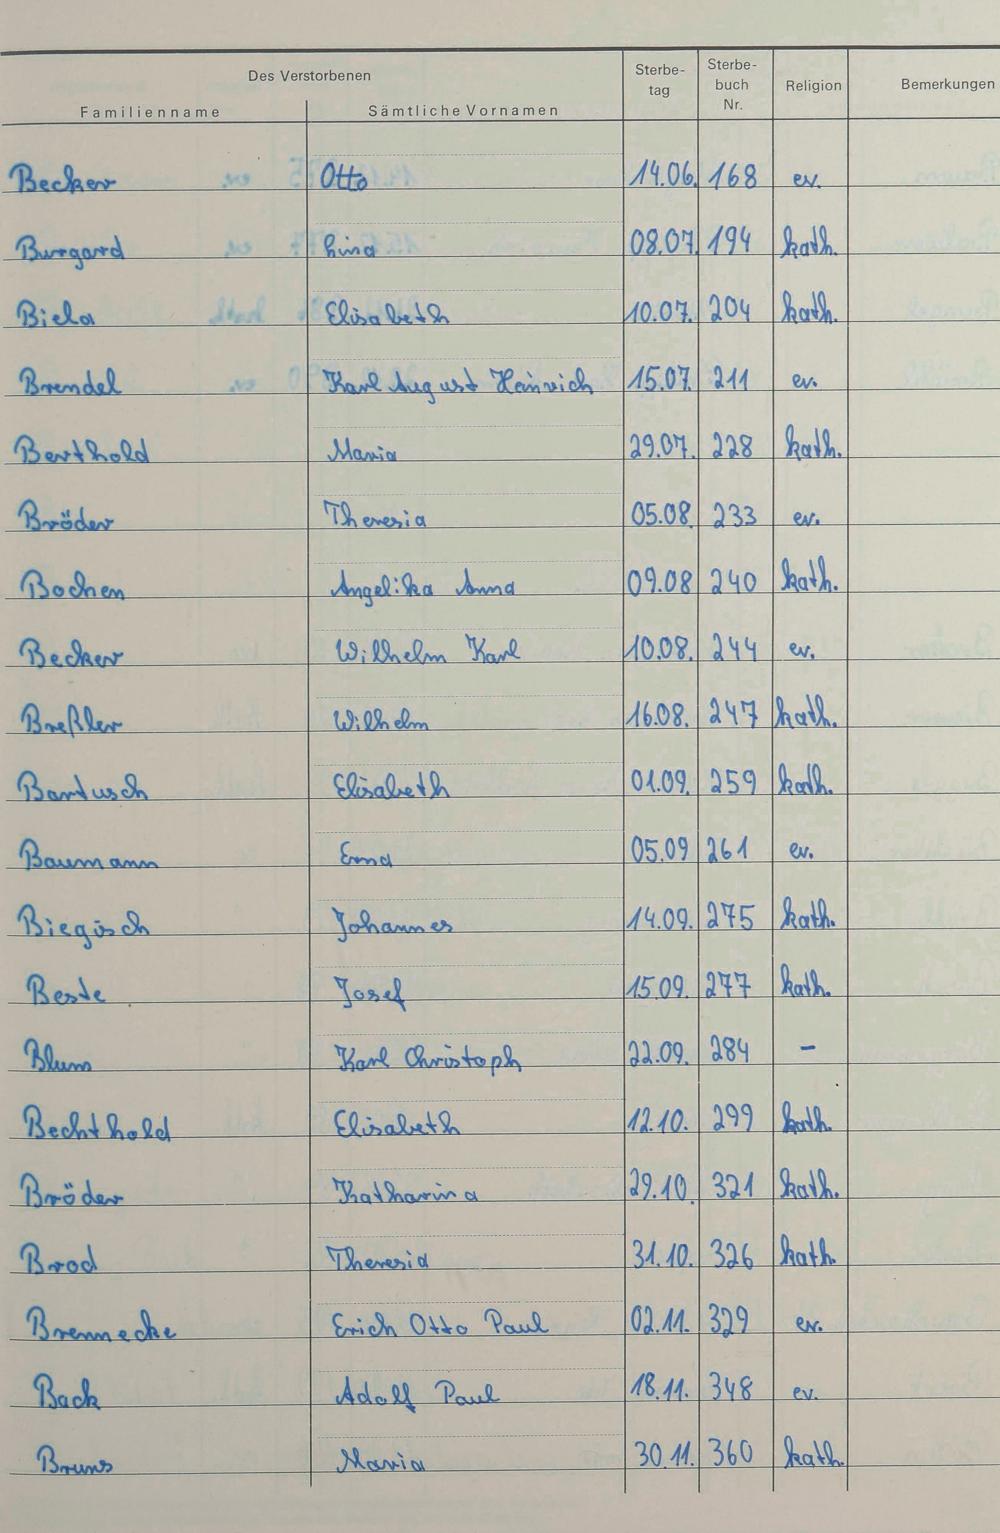 Des Verstorbenen
Familienname Sämtliche Vornamen Sterbe- tag Sterbe- buch Nr. Religion Bemerkungen
Becker Otto 14.06. 168 ev.
Burgard Lina 08.07. 194 kath.
Biela Elisabeth 10.07. 204 kath.
Brendel Karl August Heinrich 15.07. 211 ev.
Berthold Maria 29.07. 228 kath.
Bröder Theresia 05.08. 233 ev.
Bochen Angelika Anna 09.08 240 kath.
Becker Wilhelm Karl 10.08. 244 ev.
Breßler Wilhelm 16.08. 247 kath.
Bartusch Elisabeth 01.09. 259 kath.
Baumann Erna 05.09 261 ev.
Biegisch Johannes 14.09. 275 kath.
Beste Josef 15.09. 277 kath.
Blum Karl Christoph 22.09. 284 –
Bechthold Elisabeth 12.10. 299 kath.
Bröder Katharina 29.10. 321 kath.
Brod Theresia 31.10. 326 kath.
Brennecke Erich Otto Paul 02.11. 329 ev.
Back Adolf Paul 18.11. 348 ev.
Bruns Maria 30.11. 360 kath.